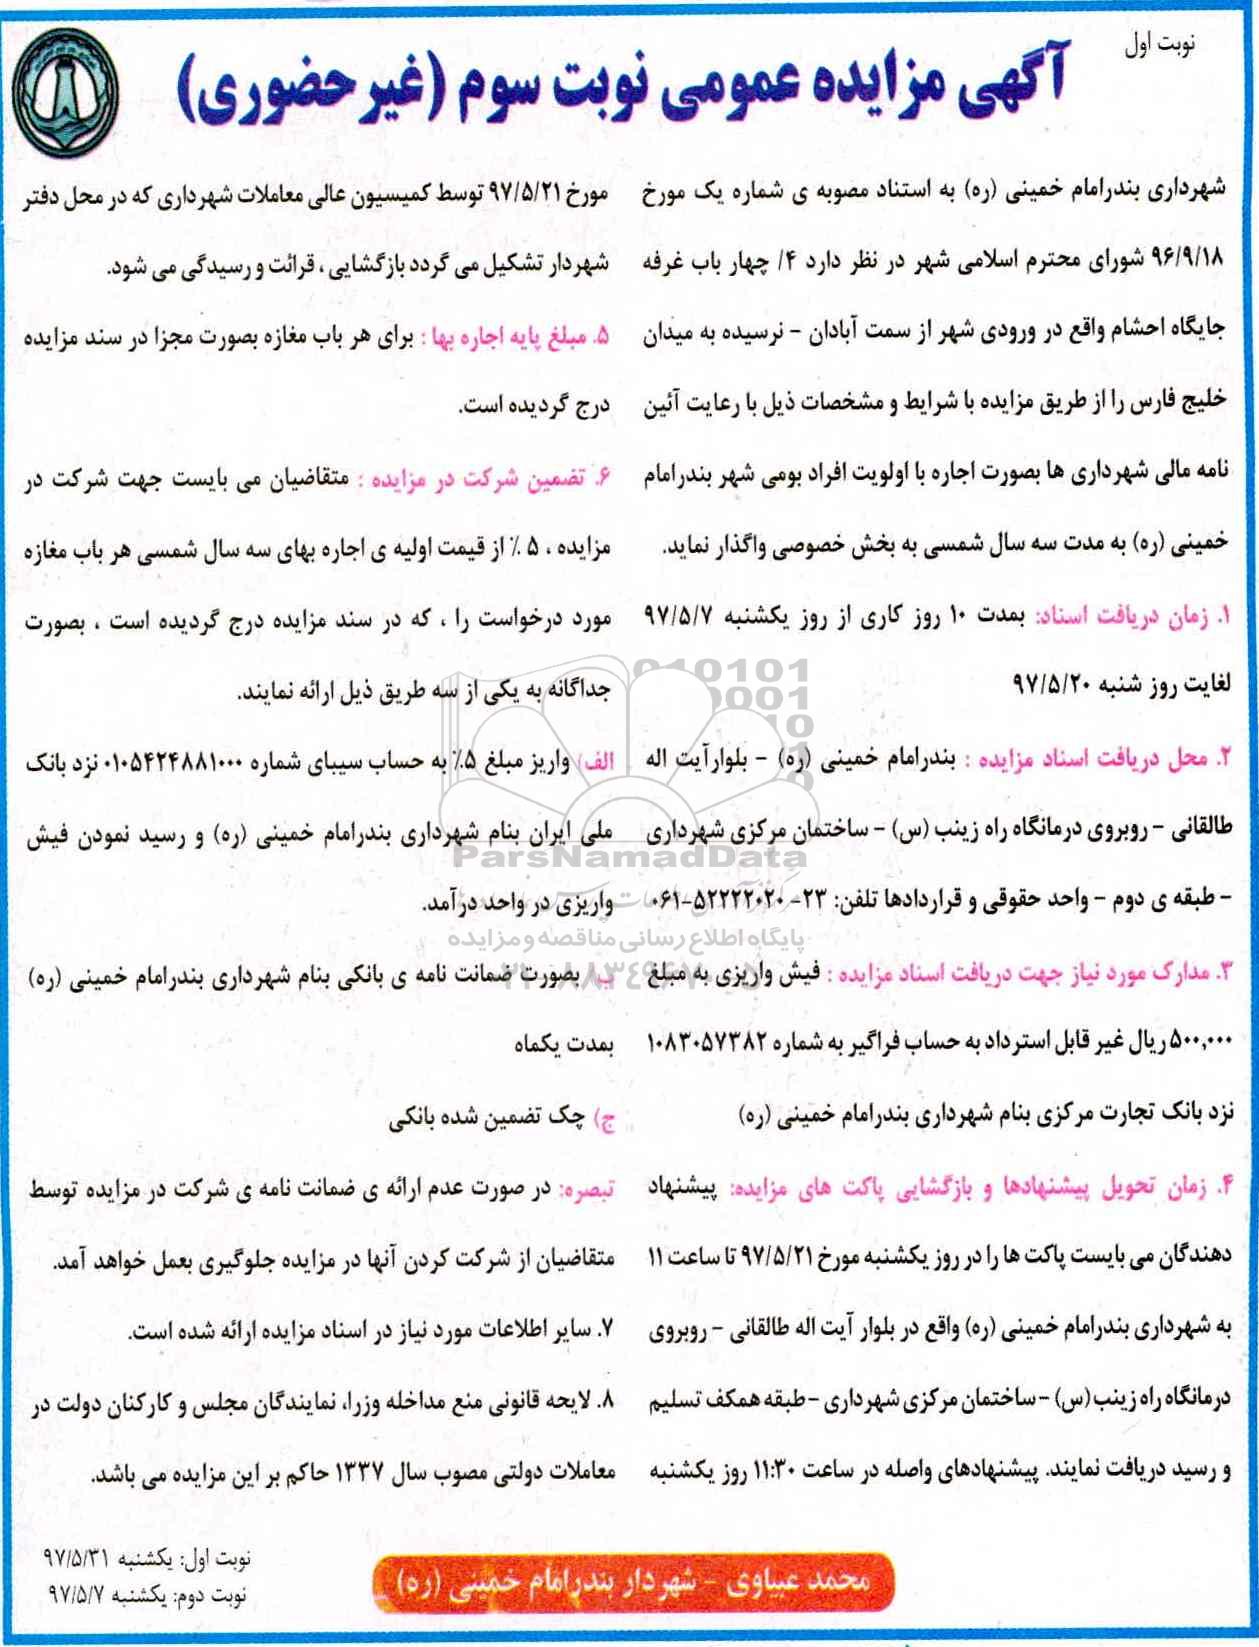 نوبت اول
آگهی مزایده عمومی نوبت سوم (غیرحضوری)
شهرداری بندرامام خمینی (ره) به استناد مصوبه ی شماره یک مورخ
۹۶/۹/۱۸ شورای محترم اسلامی شهر در نظر دارد ۴/ چهار باب غرفه
جایگاه احشام واقع در ورودی شهر از سمت آبادان – نرسیده به میدان
خلیج فارس را از طریق مزایده با شرایط و مشخصات ذیل با رعایت آئین
نامه مالی شهرداری ها بصورت اجاره با اولویت افراد بومی شهر بندرامام
خمینی (ره) به مدت سه سال شمسی به بخش خصوصی واگذار نماید.
۱. زمان دریافت اسناد: بمدت ۱۰ روز کاری از روز یکشنبه ۹۷/۵/۷
لغایت روز شنبه ۹۷/۵/۲۰
۲. محل دریافت اسناد مزایده : بندرامام خمینی (ره) – بلوارآیت اله
طالقانی – روبروی درمانگاه راه زینب (س) – ساختمان مرکزی شهرداری
– طبقه ی دوم – واحد حقوقی و قراردادها تلفن: ۲۳- ۵۲۲۲۲۰۲۰-۰۶۱
۳. مدارک مورد نیاز جهت دریافت اسناد مزایده : فیش واریزی به مبلغ
۵۰۰,۰۰۰ ریال غیر قابل استرداد به حساب فراگیر به شماره ۱۰۸۳۰۵۷۳۸۲
نزد بانک تجارت مرکزی بنام شهرداری بندرامام خمینی (ره)
۴. زمان تحویل پیشنهادها و بازگشایی پاکت های مزایده: پیشنهاد
دهندگان می بایست پاکت ها را در روز یکشنبه مورخ ۹۷/۵/۲۱ تا ساعت ۱۱
به شهرداری بندرامام خمینی (ره) واقع در بلوار آیت اله طالقانی – روبروی
درمانگاه راه زینب (س) –ساختمان مرکزی شهرداری –طبقه همکف تسلیم
و رسید دریافت نمایند. پیشنهادهای واصله در ساعت ۱۱:۳۰ روز یکشنبه
مورخ ۹۷/۵/۲۱ توسط کمیسیون عالی معاملات شهرداری که در محل دفتر
شهردار تشکیل می گردد بازگشایی ، قرائت و رسیدگی می شود.
۵. مبلغ پایه اجاره بها : برای هر باب مغازه بصورت مجزا در سند مزایده
درج گردیده است.
۶. تضمین شرکت در مزایده : متقاضیان می بایست جهت شرکت در
مزایده ، ۵ ٪ از قیمت اولیه ی اجاره بهای سه سال شمسی هر باب مغازه
مورد درخواست را ، که در سند مزایده درج گردیده است ، بصورت
جداگانه به یکی از سه طریق ذیل ارائه نمایند.
الف) واریز مبلغ ۵٪ به حساب سیبای شماره ۰۱۰۵۴۲۴۸۸۱۰۰۰ نزد بانک
ملی ایران بنام شهرداری بندرامام خمینی (ره) و رسید نمودن فیش
واریزی در واحد درآمد.
ب) بصورت ضمانت نامه ی بانکی بنام شهرداری بندرامام خمینی (ره)
بمدت یکماه
ج) چک تضمین شده بانکی
تبصره: در صورت عدم ارائه ی ضمانت نامه ی شرکت در مزایده توسط
متقاضیان از شرکت کردن آنها در مزایده جلوگیری بعمل خواهد آمد.
۷. سایر اطلاعات مورد نیاز در اسناد مزایده ارائه شده است.
۸. لایحه قانونی منع مداخله وزرا، نمایندگان مجلس و کارکنان دولت در
معاملات دولتی مصوب سال ۱۳۳۷ حاکم بر این مزایده می باشد.
نوبت اول: یکشنبه ۹۷/۵/۳۱
نوبت دوم: یکشنبه ۹۷/۵/۷
محمد عیباوی – شهردار بندرامام خمینی (ره)
ParsNamadData
پایگاه اطلاع رسانی مناقصه و مزایده